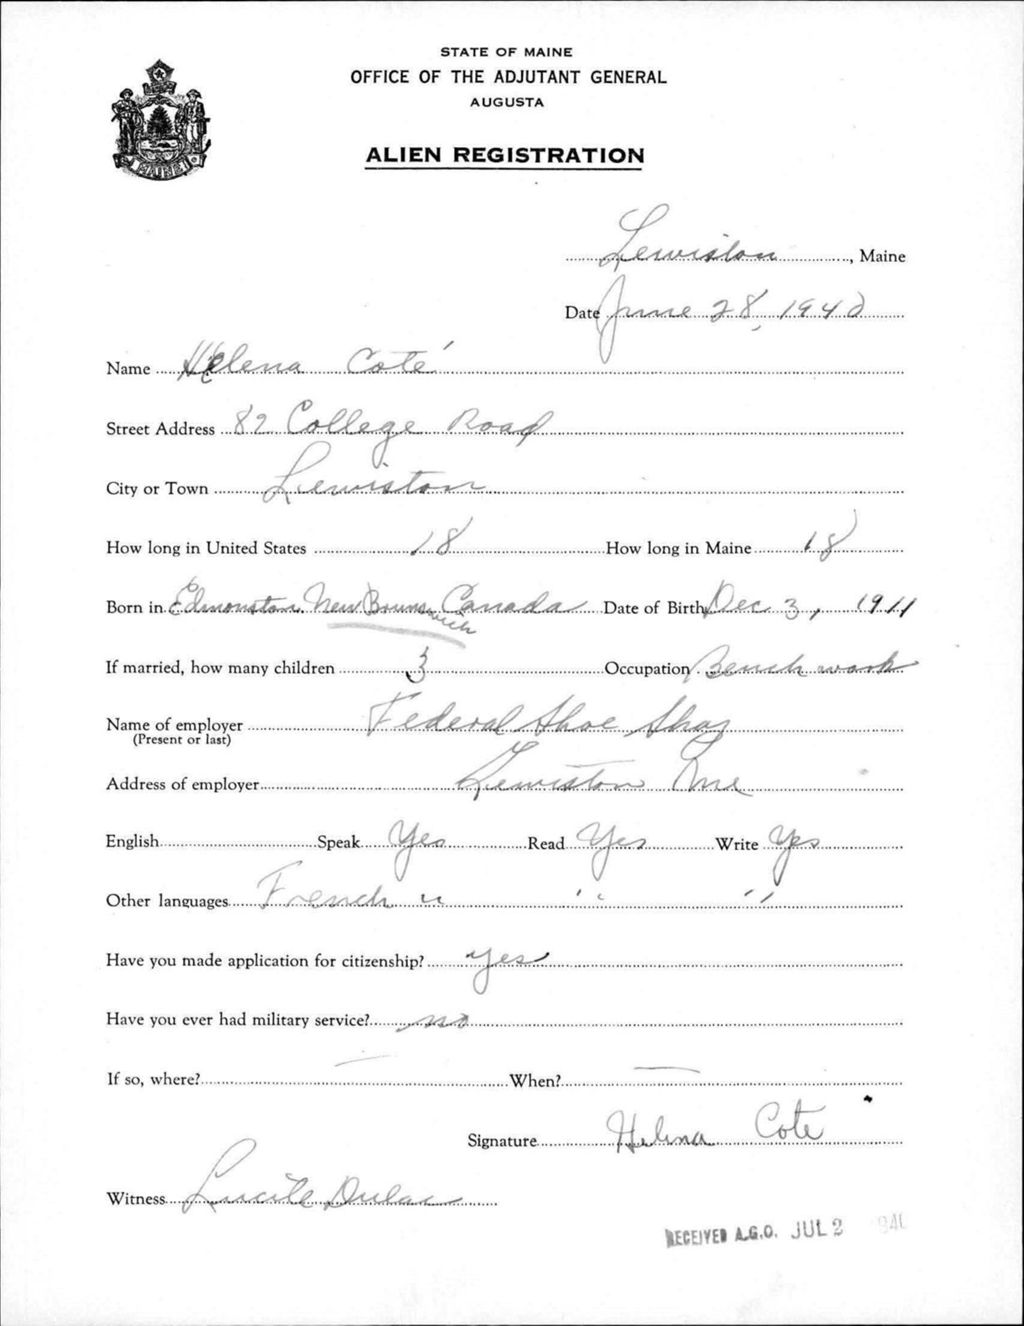 STATE OF MAINE
OFFICE OF THE ADJUTANT GENERAL
AUGUSTA
ALIEN REGISTRATION
MAINE
Lewiston, Maine
Date June 28, 1940
Name Helena Coté
Street Address 82 College Road
City or Town Lewiston
How long in United States 18 How long in Maine 18
Born in Edmonston, New Brunswick Canada Date of Birth Dec 3, 1911
If married, how many children 3 Occupation Bench work
Name of employer Federal Shoe Shop
(Present or last)
Address of employer Lewiston Me
English Speak Yes Read Yes Write Yes
Other languages French " " "
Have you made application for citizenship? Yes
Have you ever had military service? no
If so, where? — When? —
Signature Helena Coté
Witness Lucile Dulac
RECEIVED A.G.O. JUL 2 1940